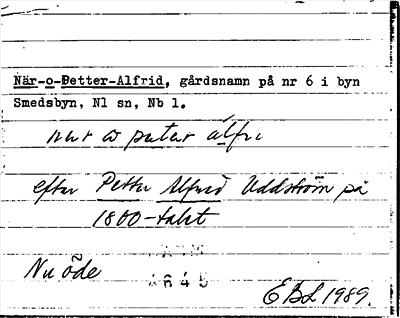 När-o-Petter-Alfrid, gårdsnamn på nr 6 i byn
Smedsbyn, Nl sn, Nb l.
efter Petter Alfrid Uddström på
1800-talet
Nu öde
EBL 1989.